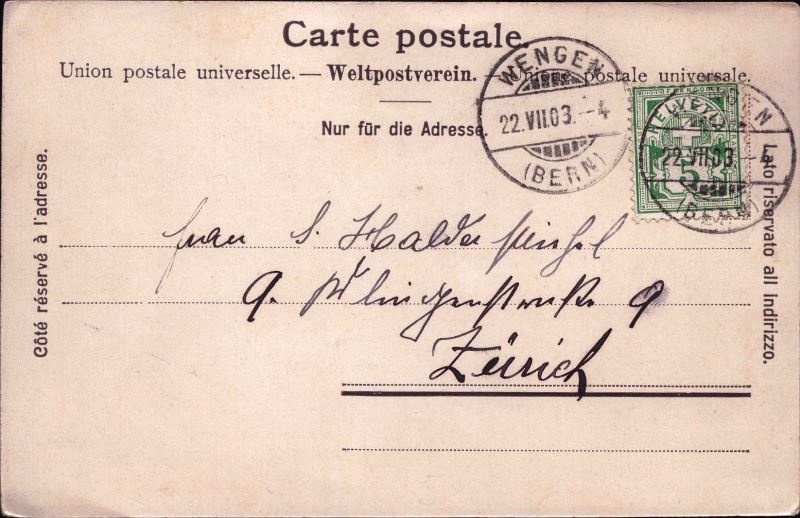 Carte postale.
Union postale universelle. — Weltpostverein. — Unione postale universale.
Nur für die Adresse.
Côté réservé à l'adresse.
Lato riservato all indirizzo.
WENGEN
22.VII.03.–4
(BERN)
HELVETIA
5
22.VII.03.–4
Frau S.
9
Zürich